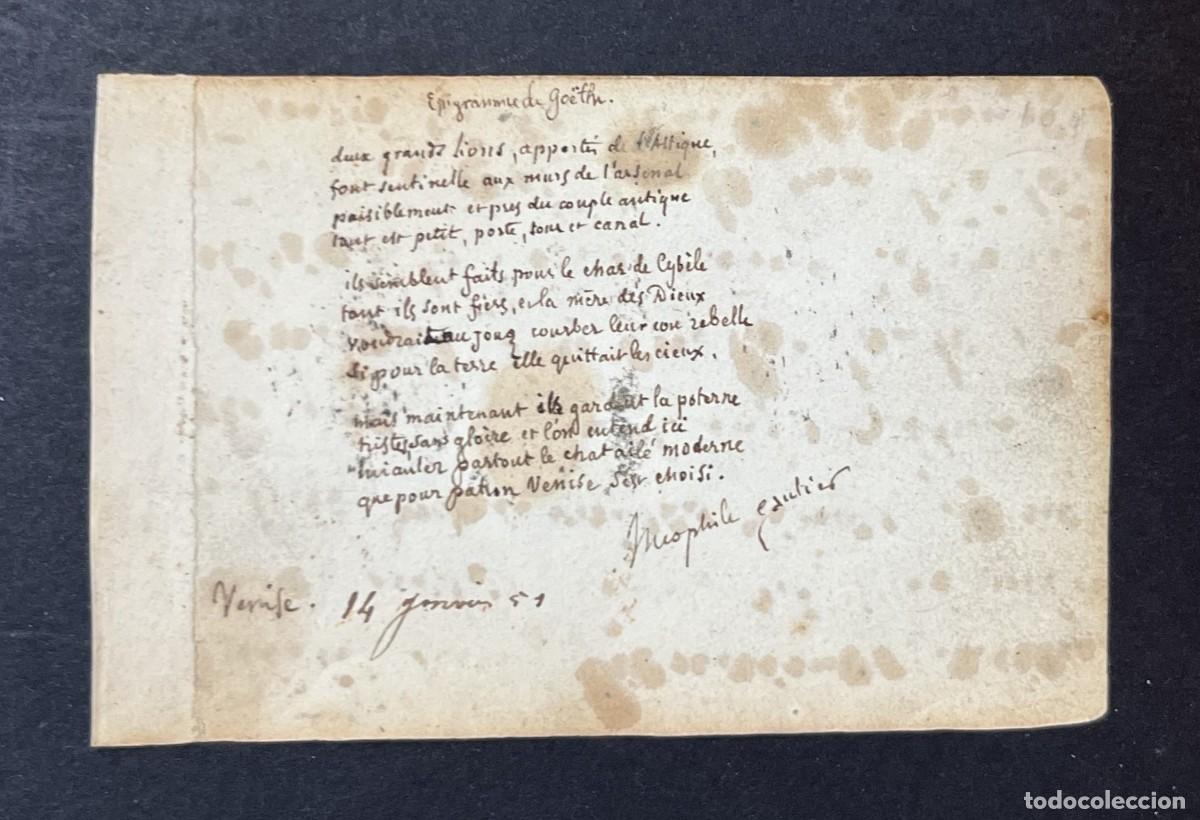 Epigramme de Goëthe.
deux grands lions, apportés de l'Attique,
font sentinelle aux murs de l'arsenal
paisiblement et près du couple antique
tout est petit, porte, tour et canal.
ils semblent faits pour le char de Cybèle
tant ils sont fiers, et la mère des Dieux
voudrait au joug courber leur cou rebelle
Si pour la terre Elle quittait les cieux.
mais maintenant ils gardent la poterne
tristes, sans gloire et l'on entend ici
miauler partout le chat ailé moderne
que pour patron Venise s'est choisi.
Théophile Gautier
Venise. 14 janvier 51
todocoleccion